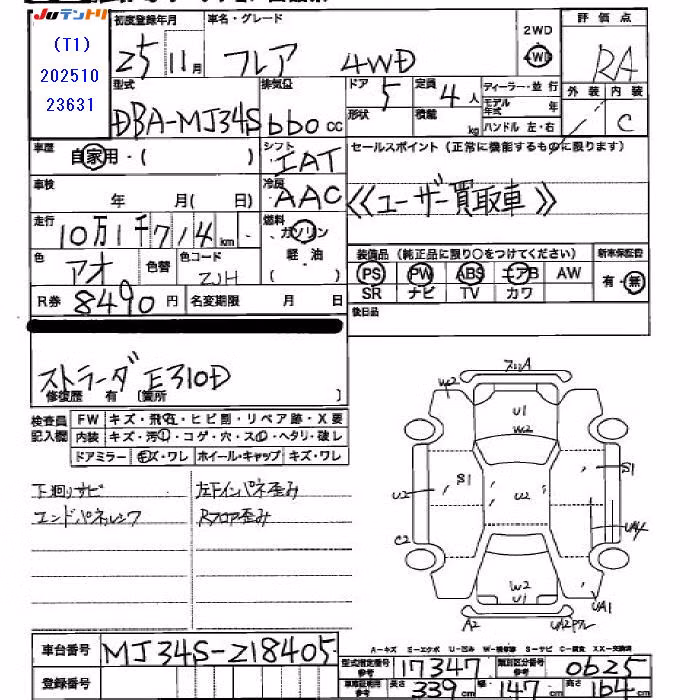 Juテントリ
(T1)
202510
23631
初度登録年月
25 11月
車名・グレード
フレア 4WD
2WD
4WD
評価点
RA
外装 内装
C
型式
DBA-MJ34S
排気量
660 cc
ドア
5
定員
4人
形状
積載
kg
ディーラー・並行
モデル年式 年
ハンドル 左・右
車歴
自家用・( )
シフト
IAT
車検
年 月( 日)
冷房
AAC
セールスポイント (正常に機能するものに限ります)
≪ユーザー買取車≫
走行
10万1千714km
燃料
ガソリン
軽油
( )
色
アオ
色替
色コード
ZJH
装備品 (純正品に限り○をつけてください)
PS PW ABS エアB AW
SR ナビ TV カワ
新車保証書
有・無
R券 8490円
名変期限 月 日
後日品
ストラーダ E310D
修復歴 有 [箇所 ]
検査員記入欄
FW キズ・飛石・ヒビ割・リペア跡・X要
内装 キズ・汚れ・コゲ・穴・スレ・ヘタリ・破レ
ドアミラー キズ・ワレ ホイール・キャップ キズ・ワレ
下廻りサビ
エンドパネルシワ
左下インパネ歪み
Rフロア歪み
W2
U1
W2
S1
U2
U2
S1
C2
W2
U1
UA1
A2
A-キズ E-エクボ U-凹み W-補修跡 S-サビ C-腐食 XX-交換済
車台番号
MJ34S-218405
登録番号
型式指定番号 参考
17347
類別区分番号 参考
0625
車庫証明用 参考
長さ 339cm
幅 147cm
高さ 164cm